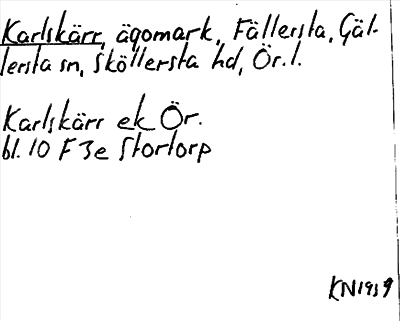 Karlskärr, ägomark, Fällersta, Gäl-
lersta sn, Sköllersta hd, Ör. l.
Karlskärr ek Ör.
bl. 10 F 3e Stortorp
KN1959